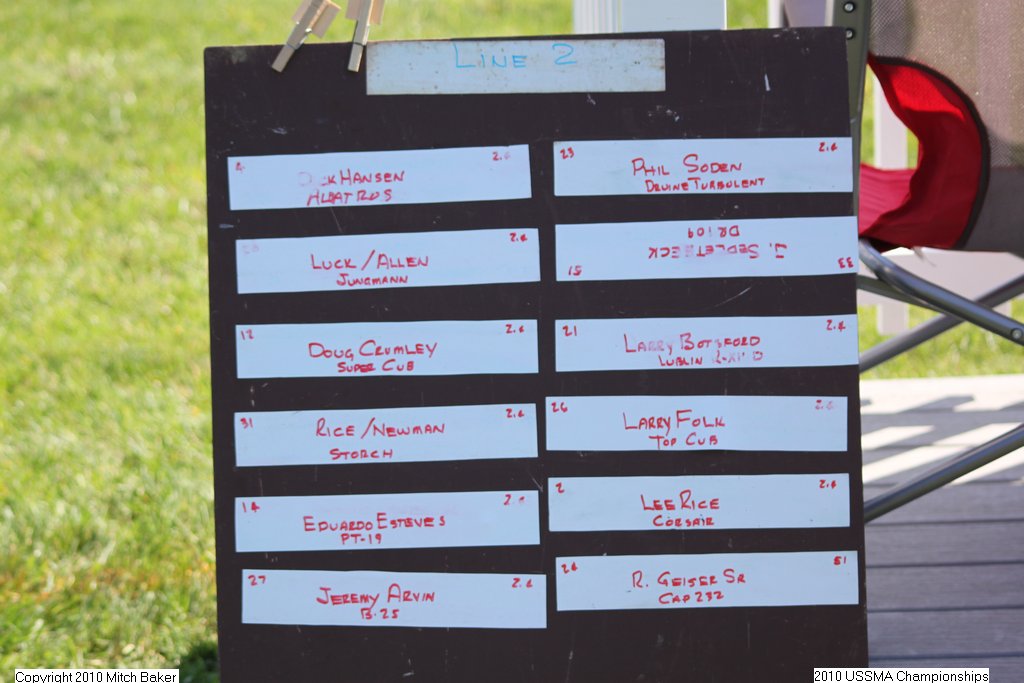 LINE 2
4 2.4
HANSEN
ALBATROS
2.4
LUCK/ALLEN
JUNGMANN
12 2.4
DOUG CRUMLEY
SUPER CUB
31 2.4
RICE/NEWMAN
STORCH
14 2.4
EDUARDO ESTEVES
PT-19
27 2.4
JEREMY ARVIN
B-25
23 2.4
PHIL SODEN
DRUINE TURBULENT
33 15
J. SEDLETZECK
DR109
21 2.4
LARRY BOTSFORD
LUBLIN
26 2.4
LARRY FOLK
TOP CUB
2 2.4
LEE RICE
CORSAIR
24 51
R. GEISER SR
CAP 232
Copyright 2010 Mitch Baker
2010 USSMA Championships